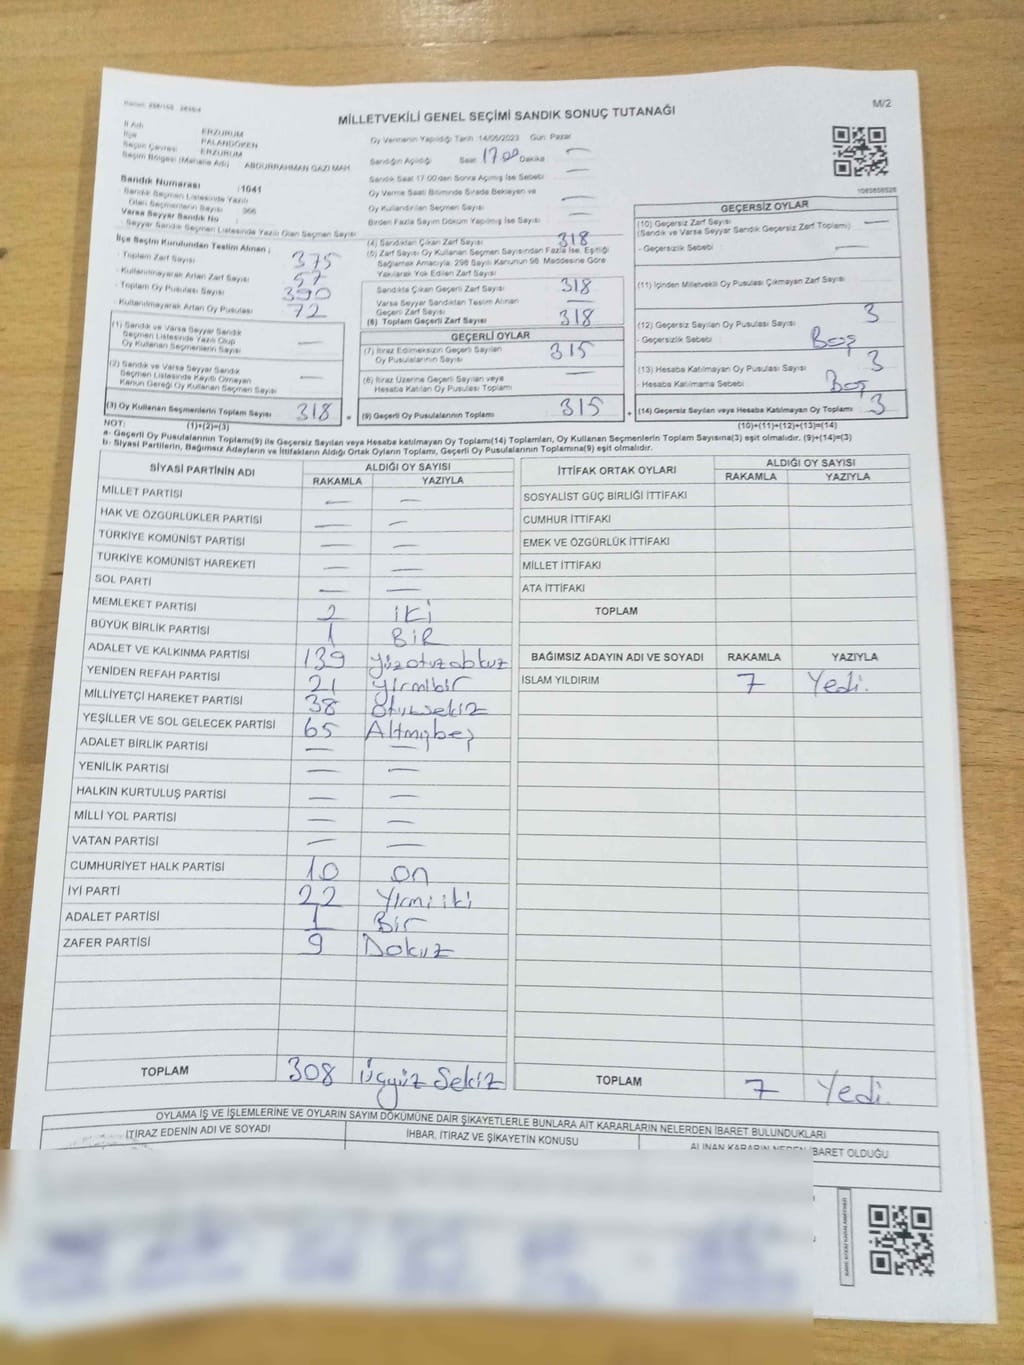 M/2
MİLLETVEKİLİ GENEL SEÇİMİ SANDIK SONUÇ TUTANAĞI
İl Adı ERZURUM
İlçe PALANDÖKEN
Seçim Çevresi ERZURUM
Seçim Bölgesi (Mahalle Adı) ABDURRAHMAN GAZİ MAH
Sandık Numarası :1041
Sandık Seçmen Listesinde Yazılı
Olan Seçmenlerin Sayısı 366
Varsa Seyyar Sandık No :
Seyyar Sandık Seçmen Listesinde Yazılı Olan Seçmen Sayısı
İlçe Seçim Kurulundan Teslim Alınan ;
- Toplam Zarf Sayısı 375
- Kullanılmayarak Artan Zarf Sayısı 57
- Toplam Oy Pusulası Sayısı 390
- Kullanılmayarak Artan Oy Pusulası 72
(1) Sandık ve Varsa Seyyar Sandık
Seçmen Listesinde Yazılı Olup
Oy Kullanan Seçmenlerin Sayısı —
(2) Sandık ve Varsa Seyyar Sandık
Seçmen Listesinde Kayıtlı Olmayan
Kanun Gereği Oy Kullanan Seçmen Sayısı —
(3) Oy Kullanan Seçmenlerin Toplam Sayısı 318
(1)+(2)=(3)
Oy Vermenin Yapıldığı Tarih 14/05/2023 Gün: Pazar
Sandığın Açıldığı Saat 17.00 Dakika —
Sandık Saat 17:00'den Sonra Açılmış İse Sebebi —
Oy Verme Saati Bitiminde Sırada Bekleyen ve
Oy Kullandırılan Seçmen Sayısı —
Birden Fazla Sayım Döküm Yapılmış İse Sayısı —
(4) Sandıktan Çıkan Zarf Sayısı 318
(5) Zarf Sayısı Oy Kullanan Seçmen Sayısından Fazla İse, Eşitliği
Sağlamak Amacıyla, 298 Sayılı Kanunun 98. Maddesine Göre
Yakılarak Yok Edilen Zarf Sayısı
Sandıkta Çıkan Geçerli Zarf Sayısı 318
Varsa Seyyar Sandıktan Teslim Alınan
Geçerli Zarf Sayısı —
(6) Toplam Geçerli Zarf Sayısı 318
GEÇERLİ OYLAR
(7) İtiraz Edilmeksizin Geçerli Sayılan
Oy Pusulalarının Sayısı 315
(8) İtiraz Üzerine Geçerli Sayılan veya
Hesaba Katılan Oy Pusulası Toplamı —
= (9) Geçerli Oy Pusulalarının Toplamı 315
GEÇERSİZ OYLAR
(10) Geçersiz Zarf Sayısı —
(Sandık ve Varsa Seyyar Sandık Geçersiz Zarf Toplamı)
- Geçersizlik Sebebi : —
(11) İçinden Milletvekili Oy Pusulası Çıkmayan Zarf Sayısı
(12) Geçersiz Sayılan Oy Pusulası Sayısı 3
- Geçersizlik Sebebi : Boş
(13) Hesaba Katılmayan Oy Pusulası Sayısı 3
- Hesaba Katılmama Sebebi Boş
+ (14) Geçersiz Sayılan veya Hesaba Katılmayan Oy Toplamı 3
(10)+(11)+(12)+(13)=(14)
NOT:
a- Geçerli Oy Pusulalarının Toplamı(9) ile Geçersiz Sayılan veya Hesaba katılmayan Oy Toplamı(14) Toplamları, Oy Kullanan Seçmenlerin Toplam Sayısına(3) eşit olmalıdır. (9)+(14)=(3)
b- Siyasi Partilerin, Bağımsız Adayların ve İttifakların Aldığı Ortak Oyların Toplamı, Geçerli Oy Pusulalarının Toplamına(9) eşit olmalıdır.
SİYASİ PARTİNİN ADI ALDIĞI OY SAYISI
RAKAMLA YAZIYLA
MİLLET PARTİSİ — —
HAK VE ÖZGÜRLÜKLER PARTİSİ — —
TÜRKİYE KOMÜNİST PARTİSİ — —
TÜRKİYE KOMÜNİST HAREKETİ — —
SOL PARTİ — —
MEMLEKET PARTİSİ 2 iki
BÜYÜK BİRLİK PARTİSİ 1 BiR
ADALET VE KALKINMA PARTİSİ 139 yüzotuzdokuz
YENİDEN REFAH PARTİSİ 21 yirmibir
MİLLİYETÇİ HAREKET PARTİSİ 38 Otuzsekiz
YEŞİLLER VE SOL GELECEK PARTİSİ 65 Altmışbeş
ADALET BİRLİK PARTİSİ — —
YENİLİK PARTİSİ — —
HALKIN KURTULUŞ PARTİSİ — —
MİLLİ YOL PARTİSİ — —
VATAN PARTİSİ — —
CUMHURİYET HALK PARTİSİ 10 on
İYİ PARTİ 22 Yirmiiki
ADALET PARTİSİ 1 Bir
ZAFER PARTİSİ 9 Dokuz
TOPLAM 308 üçyüz Sekiz
İTTİFAK ORTAK OYLARI ALDIĞI OY SAYISI
RAKAMLA YAZIYLA
SOSYALİST GÜÇ BİRLİĞİ İTTİFAKI
CUMHUR İTTİFAKI
EMEK VE ÖZGÜRLÜK İTTİFAKI
MİLLET İTTİFAKI
ATA İTTİFAKI
TOPLAM
BAĞIMSIZ ADAYIN ADI VE SOYADI RAKAMLA YAZIYLA
İSLAM YILDIRIM 7 Yedi.
TOPLAM 7 Yedi.
OYLAMA İŞ VE İŞLEMLERİNE VE OYLARIN SAYIM DÖKÜMÜNE DAİR ŞİKAYETLERLE BUNLARA AİT KARARLARIN NELERDEN İBARET BULUNDUKLARI
İTİRAZ EDENİN ADI VE SOYADI İHBAR, İTİRAZ VE ŞİKAYETİN KONUSU ALINAN KARARIN NEDEN İBARET OLDUĞU